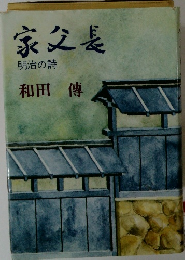 家父長
明治の詩
和田 傳